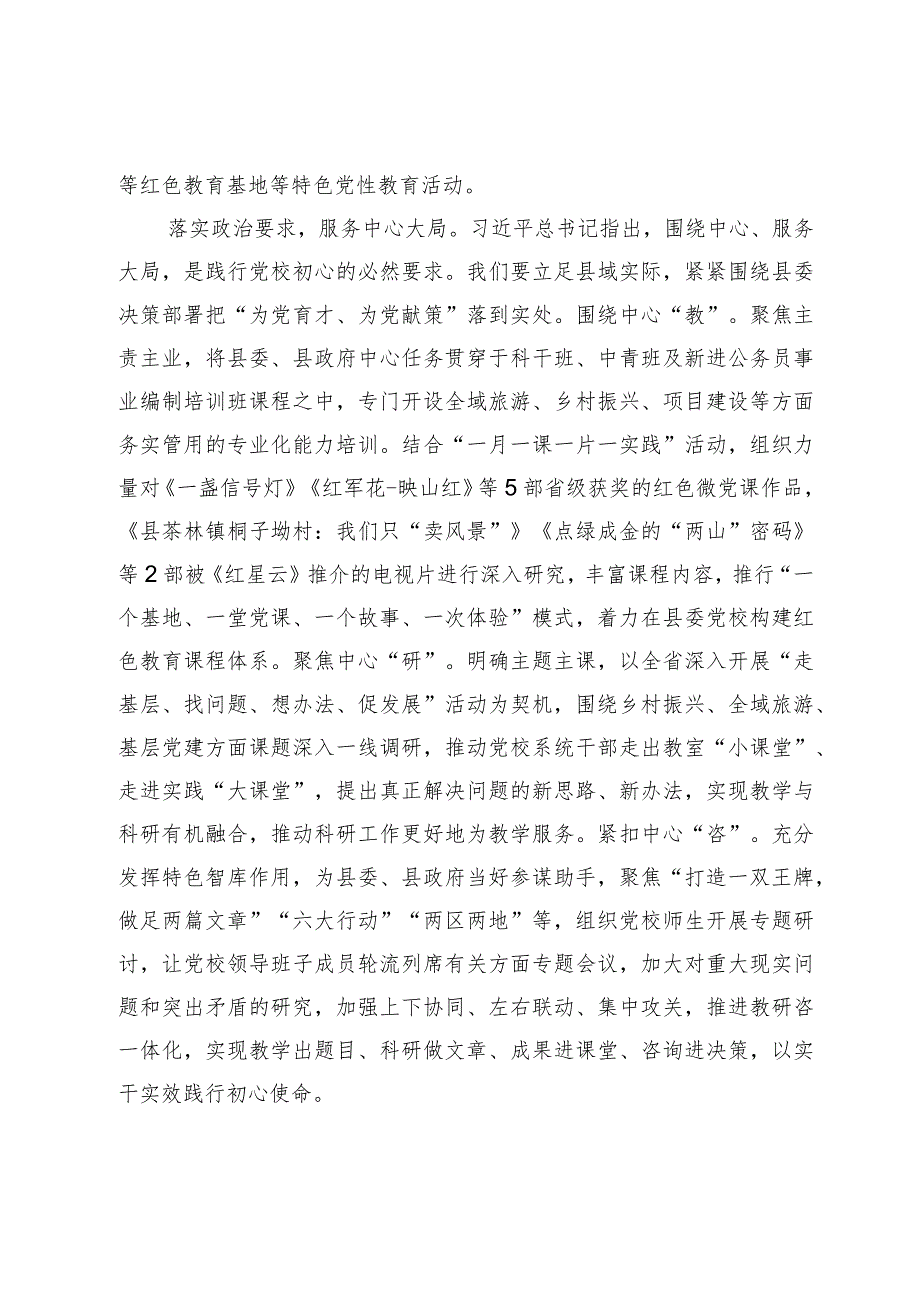 等红色教育基地等特色党性教育活动。
落实政治要求，服务中心大局。习近平总书记指出，围绕中心、服务
大局，是践行党校初心的必然要求。我们要立足县域实际，紧紧围绕县委
决策部署把“为党育才、为党献策”落到实处。围绕中心“教”。聚焦主
责主业，将县委、县政府中心任务贯穿于科干班、中青班及新进公务员事
业编制培训班课程之中，专门开设全域旅游、乡村振兴、项目建设等方面
务实管用的专业化能力培训。结合“一月一课一片一实践”活动，组织力
量对《一盏信号灯》《红军花-映山红》等5部省级获奖的红色微党课作品，
《县茶林镇桐子坳村：我们只“卖风景”》《点绿成金的“两山”密码》
等2部被《红星云》推介的电视片进行深入研究，丰富课程内容，推行“一
个基地、一堂党课、一个故事、一次体验”模式，着力在县委党校构建红
色教育课程体系。聚焦中心“研”。明确主题主课，以全省深入开展“走
基层、找问题、想办法、促发展”活动为契机，围绕乡村振兴、全域旅游、
基层党建方面课题深入一线调研，推动党校系统干部走出教室“小课堂”、
走进实践“大课堂”，提出真正解决问题的新思路、新办法，实现教学与
科研有机融合，推动科研工作更好地为教学服务。紧扣中心“咨”。充分
发挥特色智库作用，为县委、县政府当好参谋助手，聚焦“打造一双王牌，
做足两篇文章”“六大行动”“两区两地”等，组织党校师生开展专题研
讨，让党校领导班子成员轮流列席有关方面专题会议，加大对重大现实问
题和突出矛盾的研究，加强上下协同、左右联动、集中攻关，推进教研咨
一体化，实现教学出题目、科研做文章、成果进课堂、咨询进决策，以实
干实效践行初心使命。